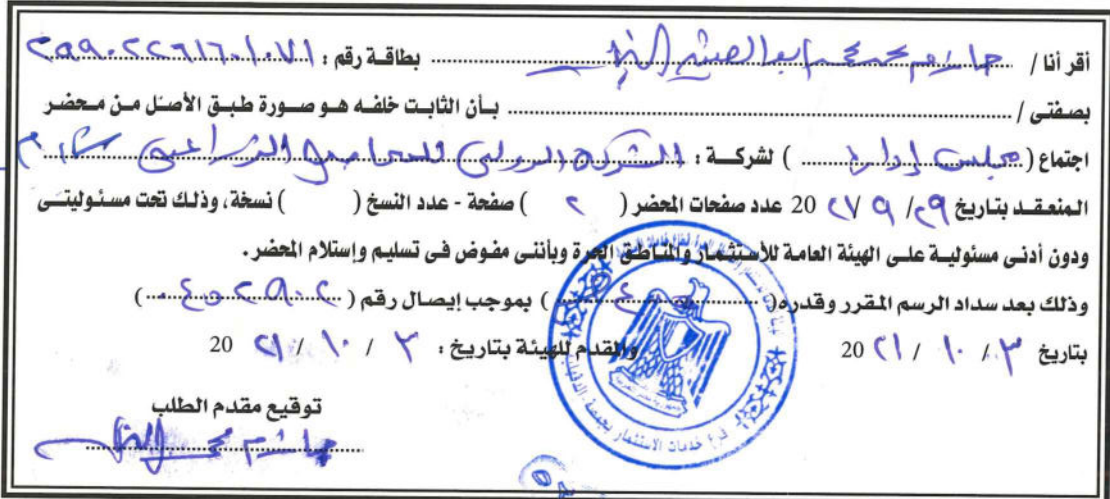 أقر أنا / حازم محمد محمد ابو العينين ........ بطاقة رقم : ٢٩٩٠٢٢٦١٦٠١٠٧١
بصفتى / ........ بأن الثابت خلفه هو صورة طبق الأصل من محضر
اجتماع ( مجلس إدارة ) لشركة : الشركة الدولى للمحاصيل الزراعية ش.م.م
المنعقد بتاريخ ٢٩ / ٩ / 20 عدد صفحات المحضر ( ٢ ) صفحة - عدد النسخ ( ) نسخة ، وذلك تحت مسئوليتى
ودون أدنى مسئولية على الهيئة العامة للأستثمار والمناطق الحرة وبأننى مفوض فى تسليم وإستلام المحضر .
وذلك بعد سداد الرسم المقرر وقدره ( ........ ) بموجب إيصال رقم ( ٤٥٢٩٠٢ )
بتاريخ ٣ / ١٠ / ٢١ 20 والمقدم للهيئة بتاريخ : ٣ / ١٠ / ٢١ 20
توقيع مقدم الطلب
حازم محمد
فرع خدمات الاستثمار